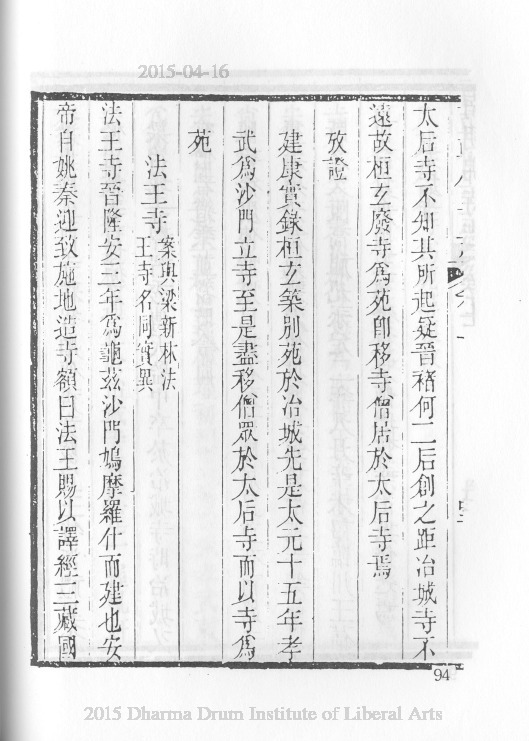 2015-04-16
太后寺不知其所起疑晉褚何二后創之距冶城寺不
遠故桓玄廢寺為苑卽移寺僧居於太后寺焉
攷證
建康實錄桓玄築別苑於冶城先是太元十五年孝
武爲沙門立寺至是盡移僧眾於太后寺而以寺爲
苑
法王寺 案與梁新林法
王寺名同實異
法王寺晉隆安三年爲龜茲沙門鳩摩羅什而建也安
帝自姚秦迎致施地造寺額曰法王賜以譯經三藏國
94
2015 Dharma Drum Institute of Liberal Arts